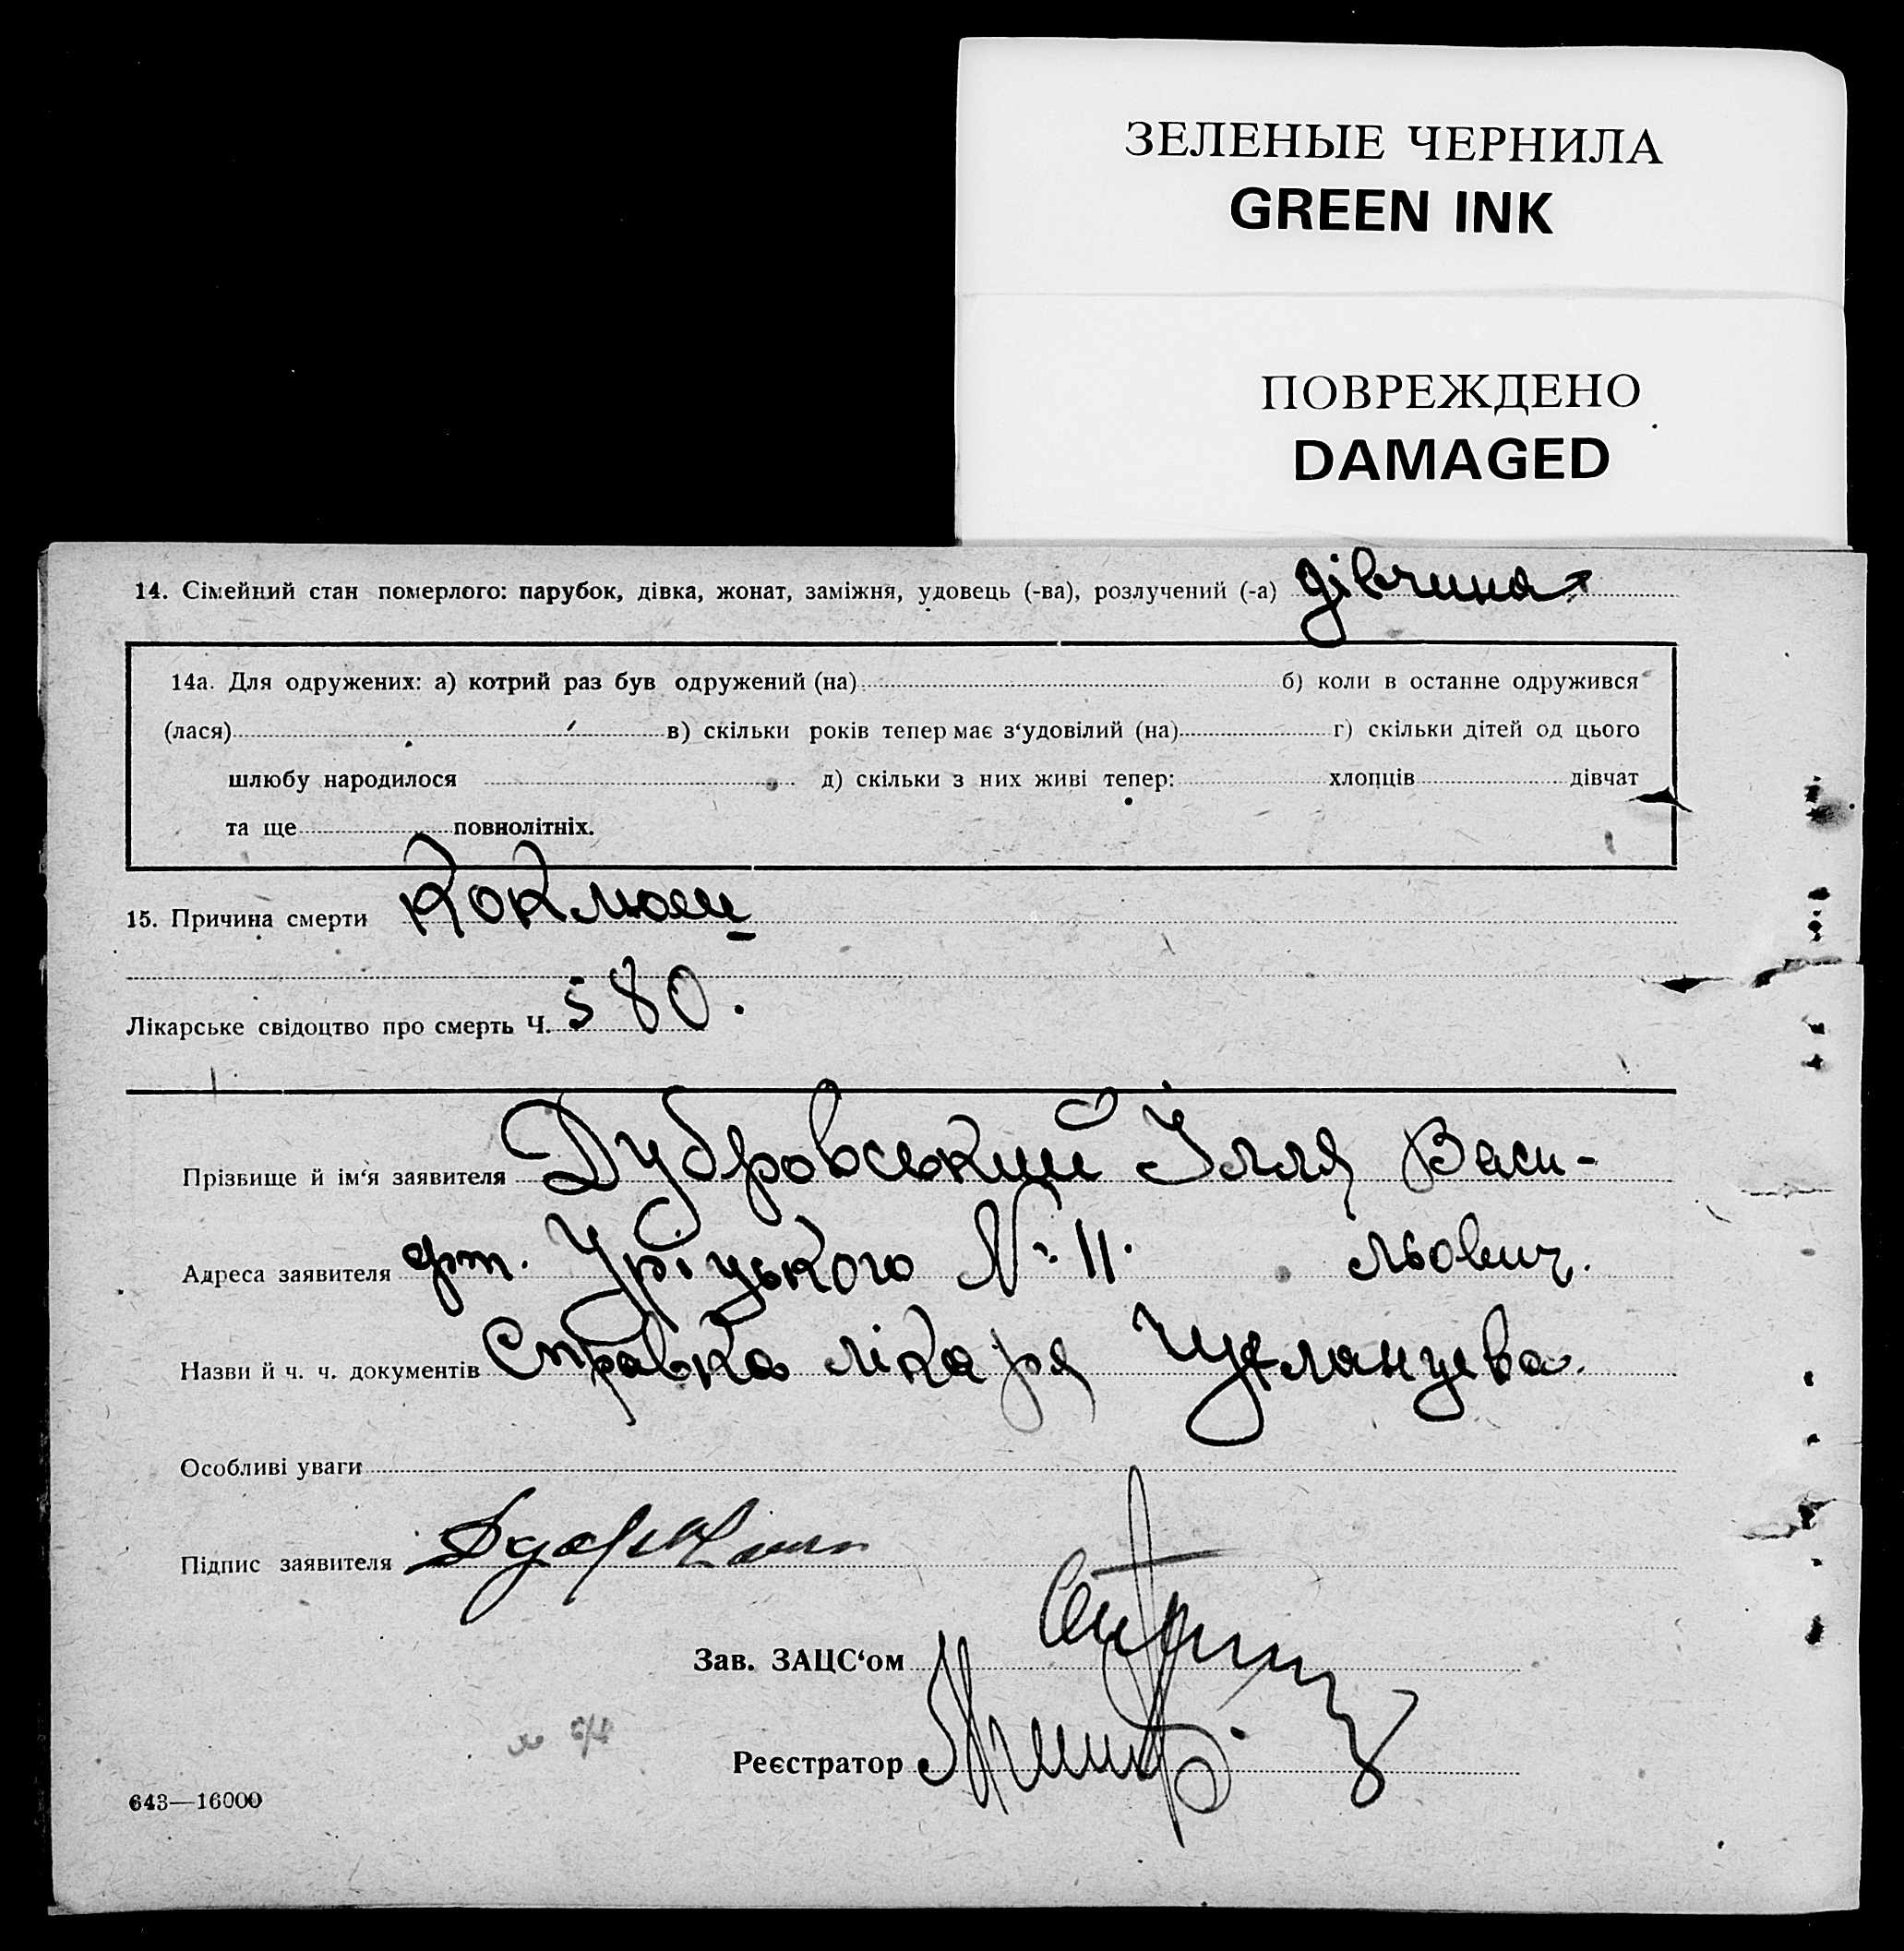 ЗЕЛЕНЫЕ ЧЕРНИЛА
GREEN INK
ПОВРЕЖДЕНО
DAMAGED
14. Сімейний стан померлого: парубок, дівка, жонат, заміжня, удовець (-ва), розлучений (-а) дівчина
14а. Для одружених: а) котрий раз був одружений (на) б) коли в останне одружився
(лася) в) скільки років тепер має з‘удовілий (на) г) скільки дітей од цього
шлюбу народилося д) скільки з них живі тепер: хлопців дівчат
та ще повнолітніх.
15. Причина смерти Коклюш
Лікарське свідоцтво про смерть Ч. 580.
Прізвище й ім‘я заявителя Дубровський Ілля Васи-
Адреса заявителя Уріцького № 11. льович.
Назви й ч. ч. документів Справка лікаря
Особливі уваги
Підпис заявителя
Зав. ЗАЦС‘ом
Реєстратор
643—16000